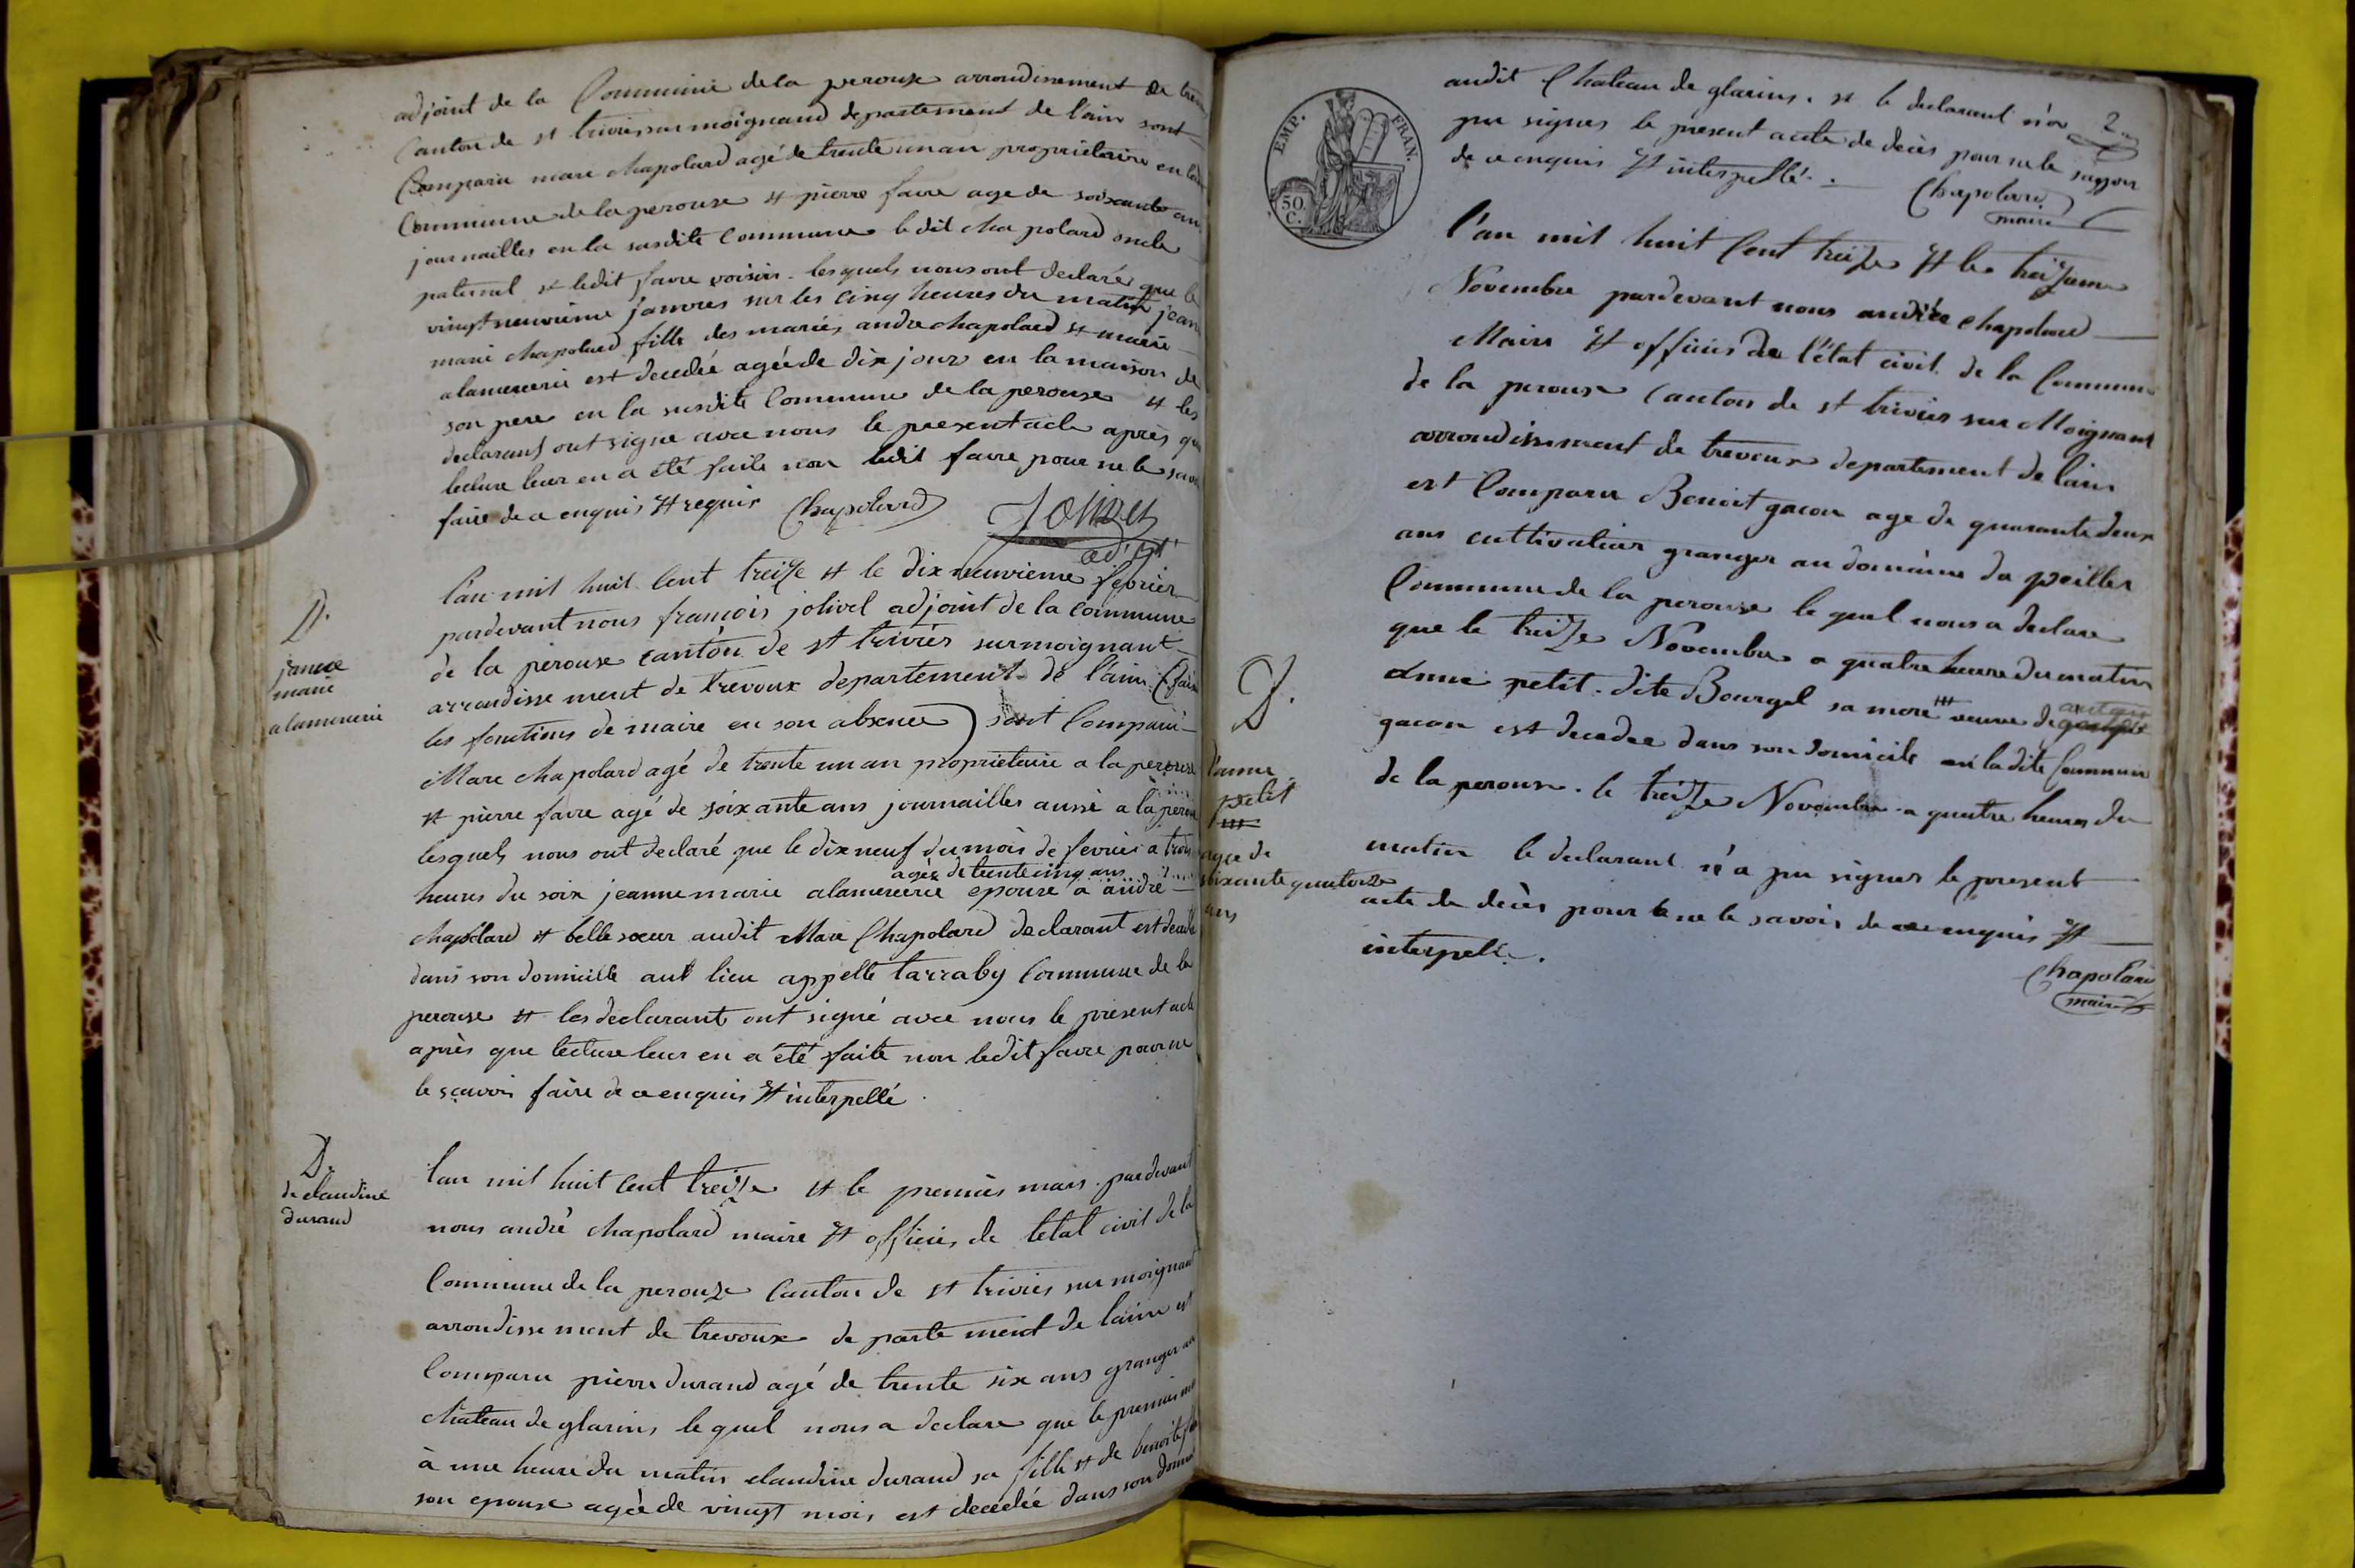 adjoint de la Commune de la perouse arrondissement de
Canton de st triviers sur moignand departement de l'ain sont
Comparu marc chapolard agé de trente un an proprietaire en
Commune de la perouse et pierre favre age de soixante an
journailler en la susdite Commune le dit chapolard oncle
paternel et ledit favre voisin. lesquels nous ont declaré que le
vingt neuvieme janvres sur les cinq heures du matin jean
marie chapolard fille des mariés andre chapolard et marie
alamercerie est decedée agée de dix jour en la maison de
son pere en la susdite Commune de la perouse et les
declarans ont signe avec nous le present acte après que
lecture leur en a été faite non ledit favre pour ne le
faire de ce enquis et requis Chapolard
Jolivet
adjt
D.
janne
marie
alamercerie
l'an mil huit Cent treize et le dix neuvieme fevrier
pardevant nous francois jolivet adjoint de la Commune
de la perouse canton de st triviers sur moignant
arrondissement de trevoux departement de l'ain (fais
les fonctions de maire en son absence) sont Comparu
Marc chapolard agé de trente un an proprietaire a la perouse
et pierre favre agé de soixante ans journailler aussi a la
lesquels nous ont declaré que le dix neuf du mois de fevrier a trois
agée de trente cinq ans
heures du soir jeanne marie alamercerie epouse a andré
chapolard et belle soeur audit Marc Chapolard declarant est decede
dans son domicille aut lieu appellé tarraby Commune de la
perouse et les declarant ont signé avec nous le present acte
après que lecture leur en a été faite non ledit favre pour ne
le sçavoir faire de ce enquis et interpellé.
D.
de claudine
durand
lan mil huit Cent treize et le premier mars. pardevant
nous andré chapolard maire et officier de letat civil de la
Commune de la perouze Canton de st triviers sur moignant
arrondissement de trevoux departement de lain est
Comparu pierre durand agé de trente six ans granger au
chateau de glarins le quel nous a declare que le premier
à une heure du matin claudine durand sa fille et de benoite
son epouse agée de vingt mois est decedée dans son
2
EMP. FRAN.
50. C.
audit Chateau de glarins. et le declarant n'a
pu signer le present acte de décès pour ne le
de ce enquis et interpellé.
Chapolard
maire
l'an mil huit Cent treize et le treizieme
Novembre pardevant nous andrée chapolard
Maire et officier de l'état civil de la Commune
de la perouse Canton de st triviers sur Moignant
arrondissement de trevoux departement de lain
est Comparu Benoit gacon age de quarante deux
ans cultivateur granger au domaine du peiller
Commune de la perouse le quel nous a declare
que le treize Novembre a quatre heure du matin
D.
petit
agee de
soixante quatorze
ans
petit. dite Bourgel sa mere veuve de
gacon est decedee dans son domicile en ladite Commune
de la perouse. le treize Novembre a quatre heures du
matin le declarant n'a pu signer le present
acte de decès pour ne le savoir de ce enquis et
interpellé.
Chapolard
maire